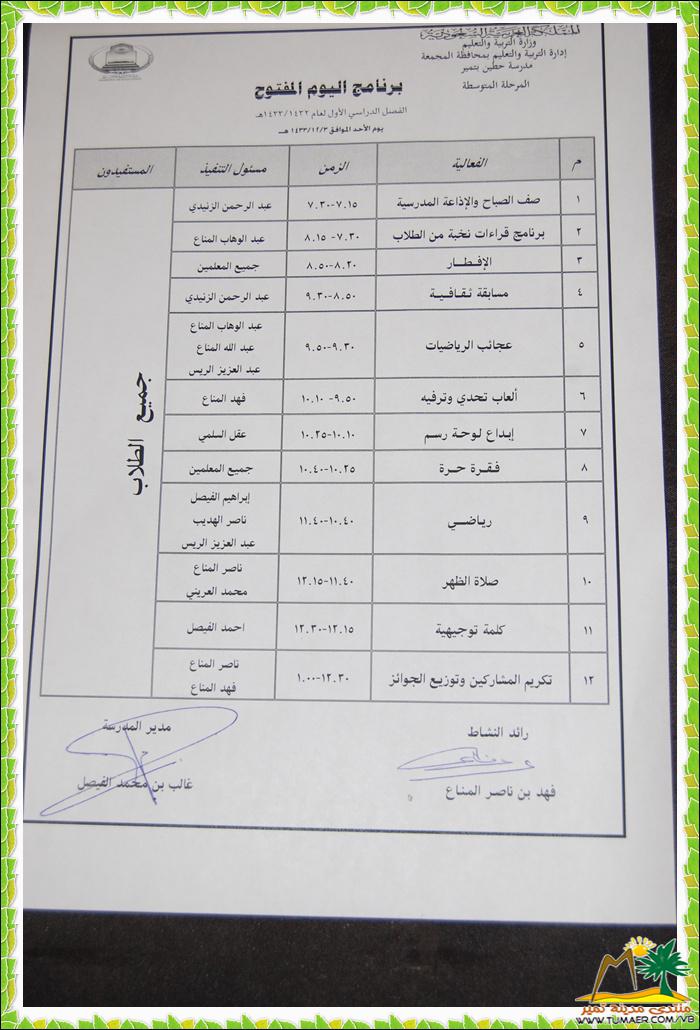 المملكة العربية السعودية
وزارة التربية والتعليم
إدارة التربية والتعليم بمحافظة المجمعة
مدرسة حطين بتمير
المرحلة المتوسطة
برنامج اليوم المفتوح
الفصل الدراسي الأول لعام ١٤٣٣/١٤٣٢هـ
يوم الأحد الموافق ١٤٣٣/١٢/٣ هـ
م الفعالية الزمن مسئول التنفيذ المستفيدون
١ صف الصباح والإذاعة المدرسية ٧.١٥-٧.٣٠ عبد الرحمن الزنيدي
٢ برنامج قراءات نخبة من الطلاب ٧.٣٠- ٨.١٥ عبد الوهاب المناع
٣ الإفطــار ٨.٢٠-٨.٥٠ جميع المعلمين
٤ مسابقة ثقافية ٨.٥٠-٩.٣٠ عبد الرحمن الزنيدي
٥ عجائب الرياضيات ٩.٣٠-٩.٥٠ عبد الوهاب المناع
عبد الله المناع
عبد العزيز الريس
٦ ألعاب تحدي وترفيه ٩.٥٠- ١٠.١٠ فهد المناع
٧ إبداع لوحة رسم ١٠.١٠-١٠.٢٥ عقل السلمي
٨ فقرة حرة ١٠.٢٥-١٠.٤٠ جميع المعلمين
٩ رياضي ١٠.٤٠-١١.٤٠ إبراهيم الفيصل
ناصر الهديب
عبد العزيز الريس
١٠ صلاة الظهر ١١.٤٠-١٢.١٥ ناصر المناع
محمد العريني
١١ كلمة توجيهية ١٢.١٥-١٢.٣٠ احمد الفيصل
١٢ تكريم المشاركين وتوزيع الجوائز ١٢.٣٠-١.٠٠ ناصر المناع
فهد المناع
جميع الطلاب
رائد النشاط
فهد بن ناصر المناع
مدير المدرسة
غالب بن محمد الفيصل
منتدى مدينة تمير
WWW.TUMAER.COM/VB